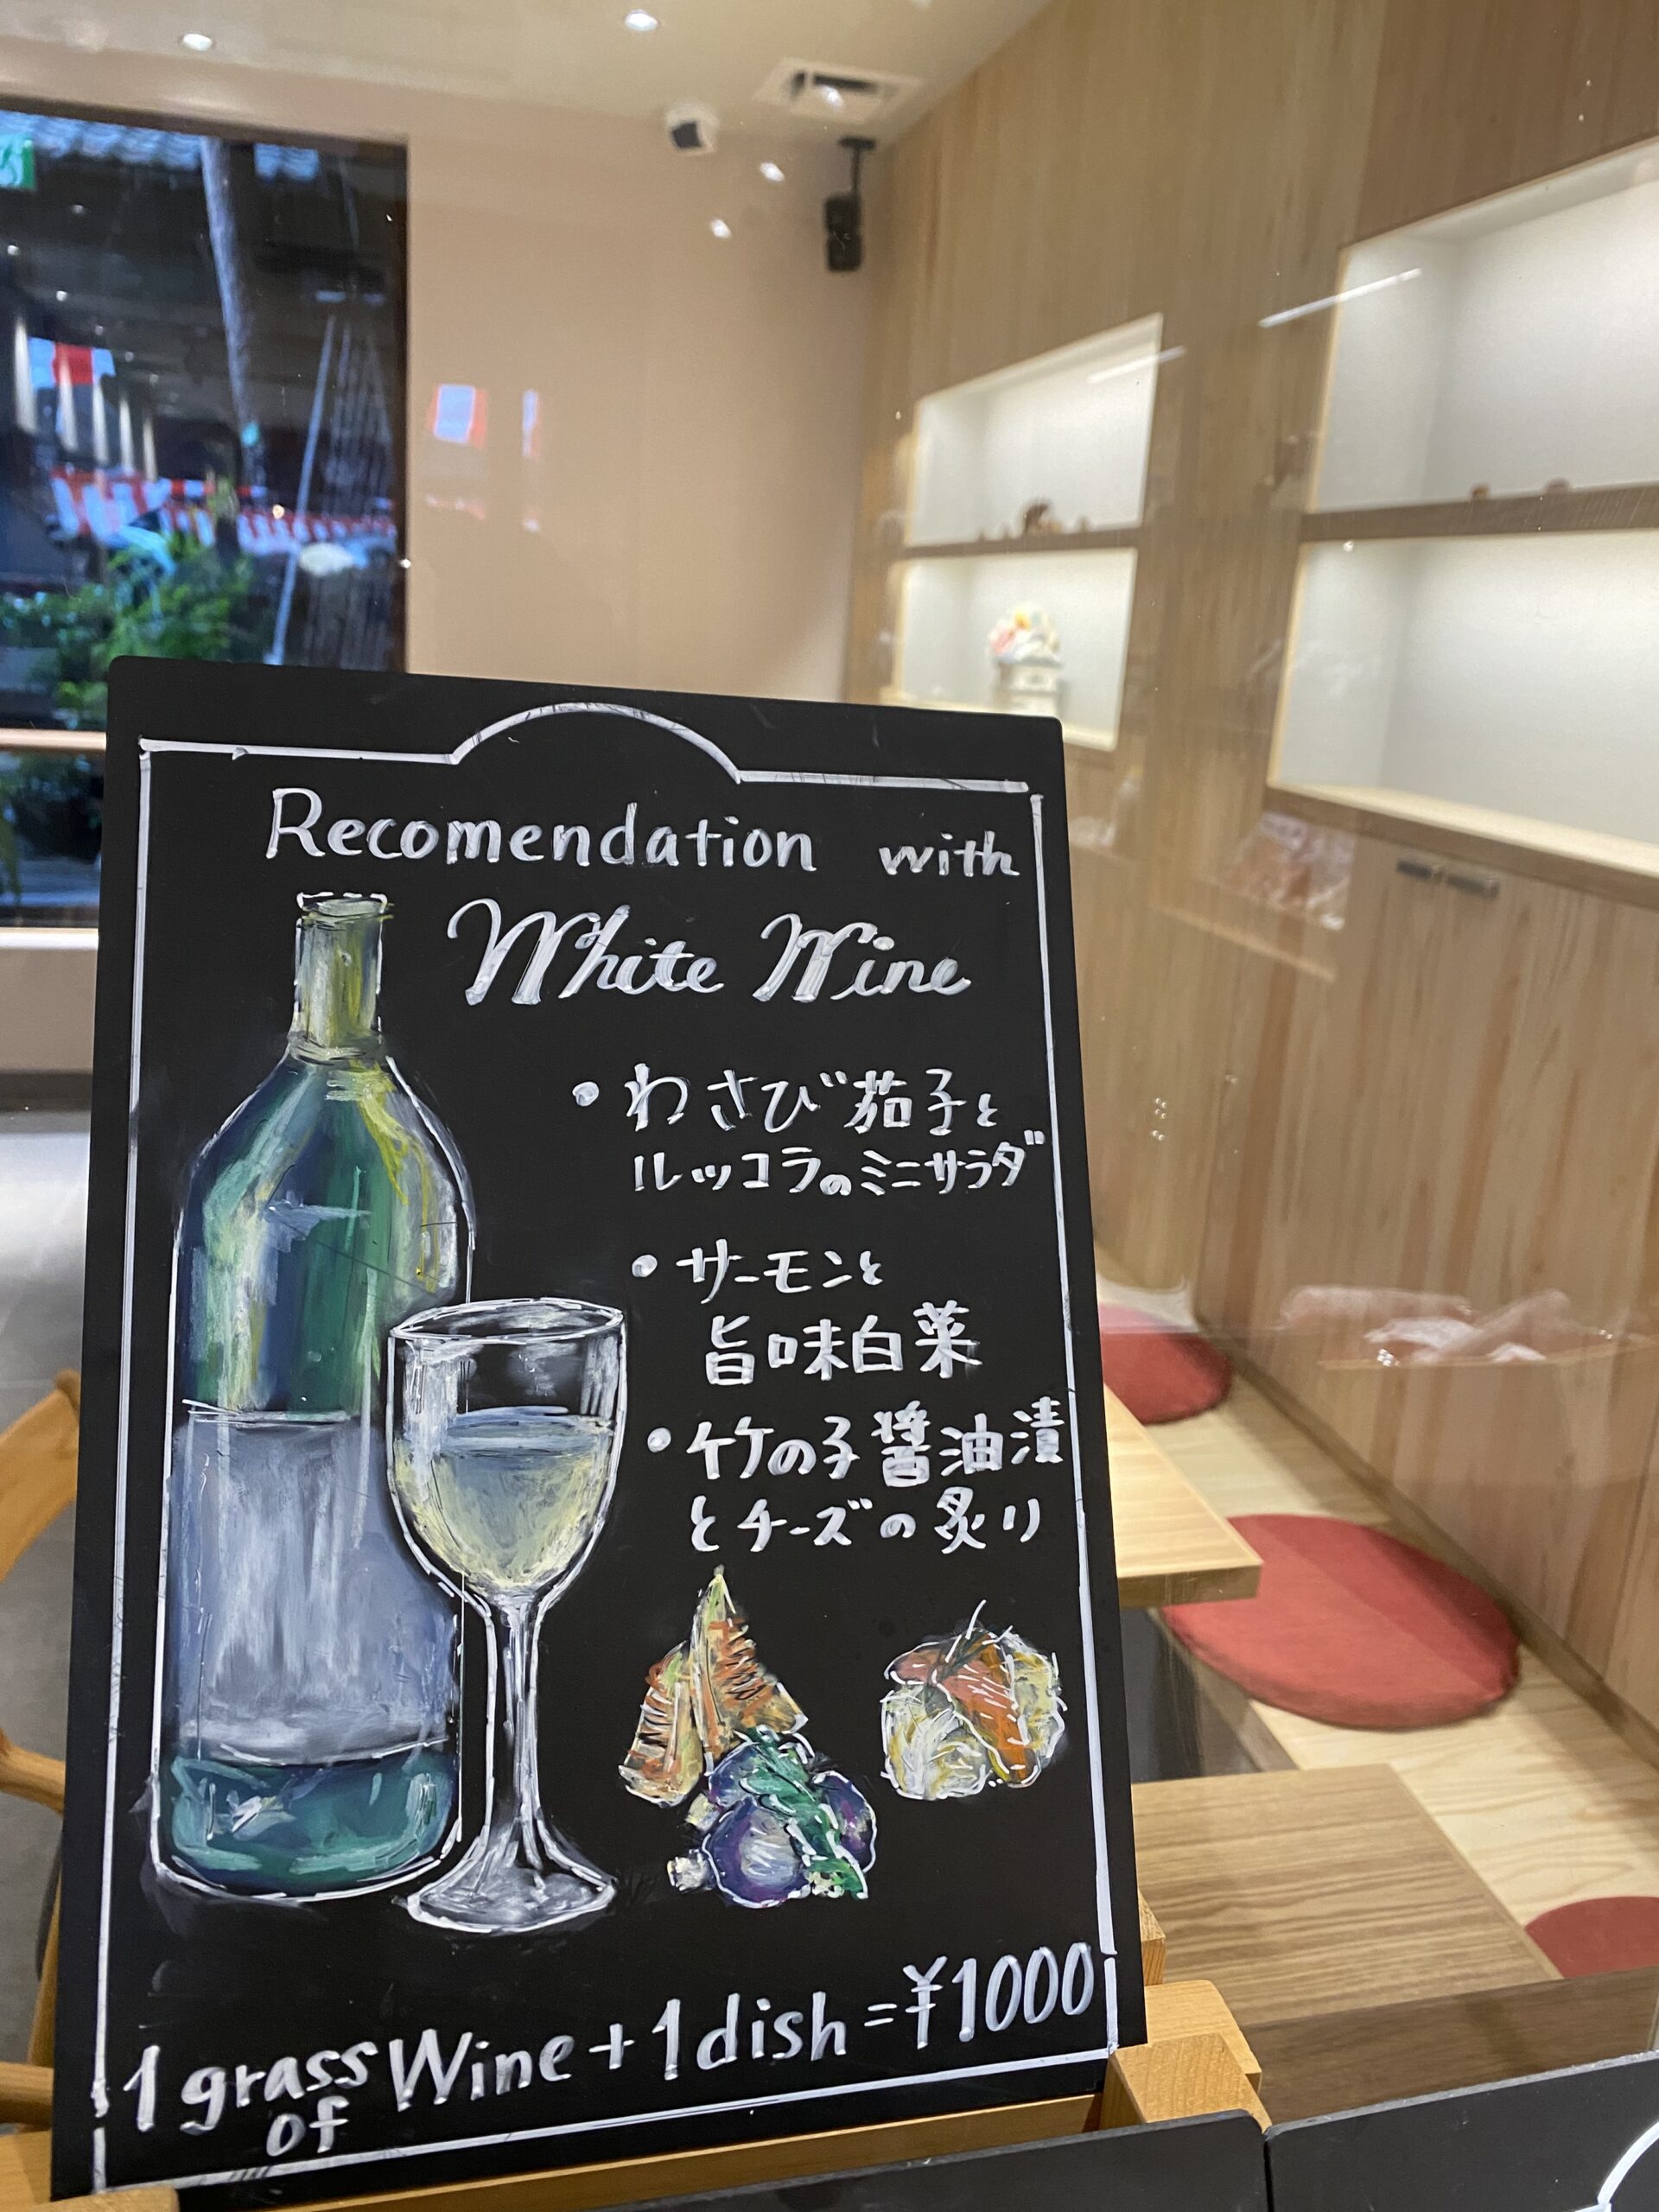 Recomendation with
White Wine
• わさび茄子と
ルッコラのミニサラダ
• サーモンと
旨味白菜
• 竹の子醤油漬
とチーズの炙り
1 grass of Wine + 1 dish = ¥1000